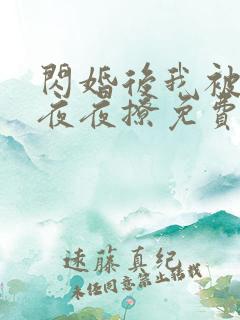 閃婚後我被
夜夜撩免費
遠藤真紀
未经同意禁止转载